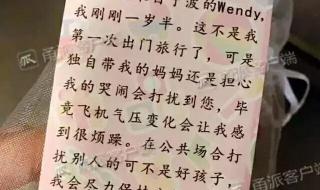 的Wendy,
我刚刚一岁半。这不是我
第一次出门旅行了，可是
独自带我的妈妈还是担心
我的哭闹会打扰到您，毕
竟飞机气压变化会让我感
到很烦躁。在公共场合打
扰别人的可不是好孩子，
我会尽力保持
甬派客户端
甬派客户端